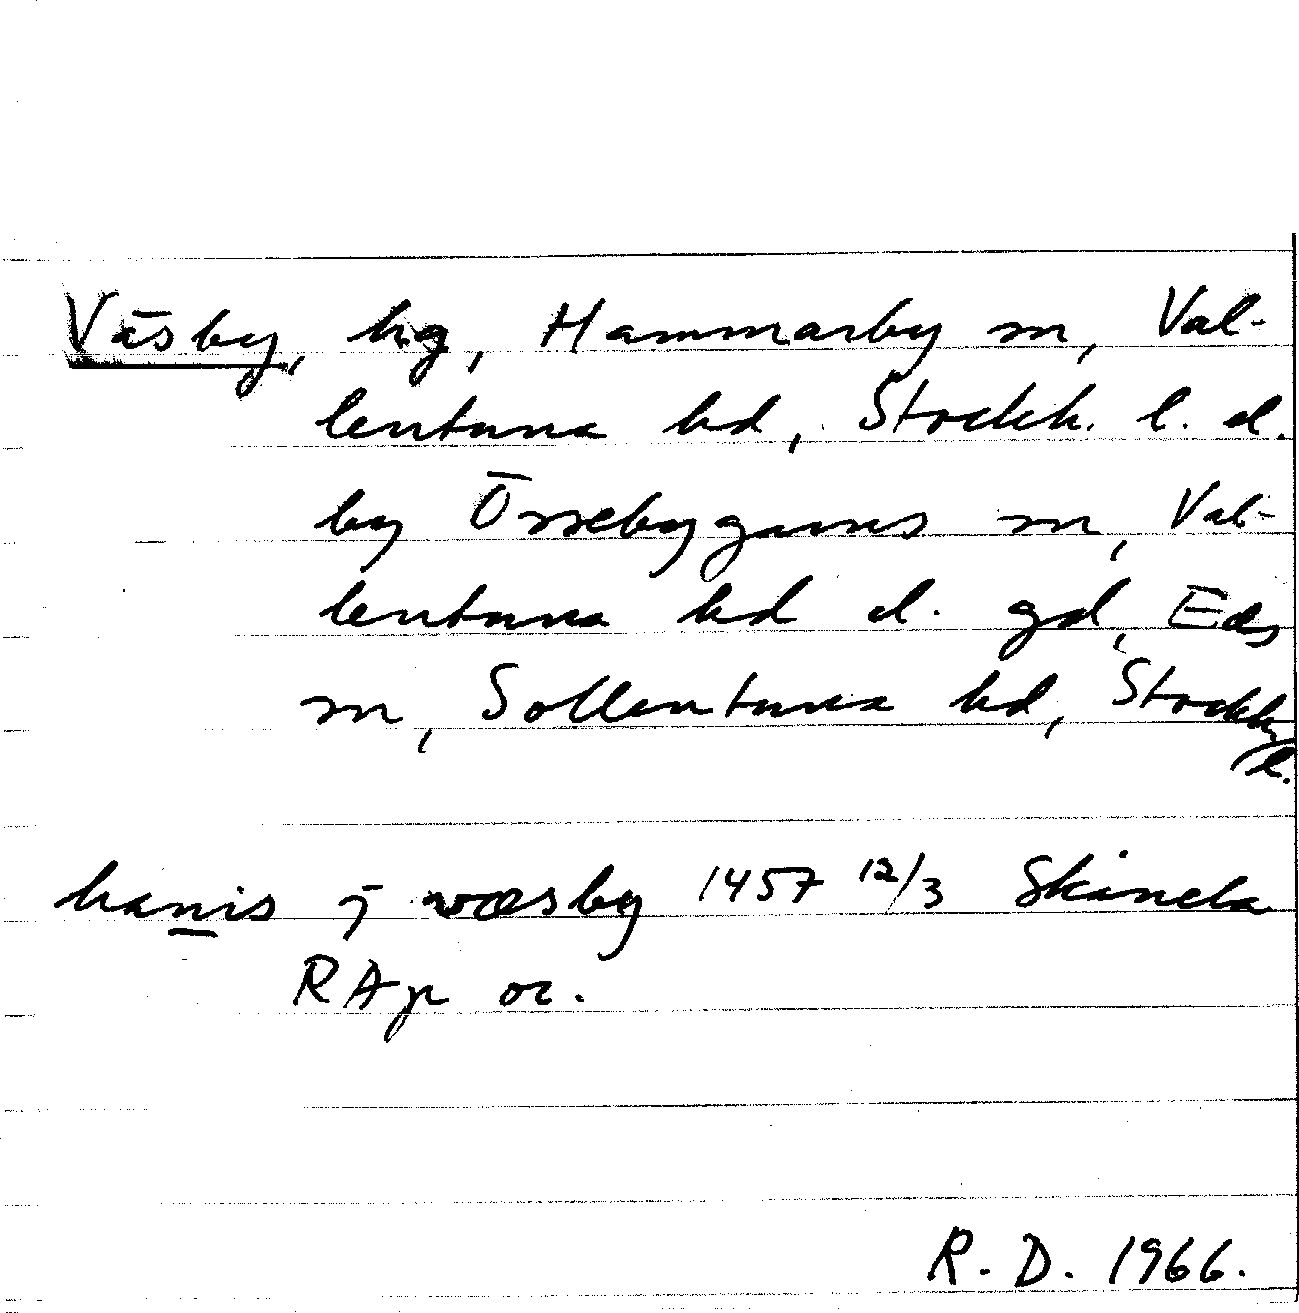 Väsby, hg, Hammarby sn, Val-
lentuna hd, Stockh. l. el.
by Össebygarns sn, Val-
lentuna hd el. gd, Eds
sn, Sollentuna hd, Stockh.
l.
hanis j wæsby 1457 12/3 Skånela
RAp or.
R. D. 1966.